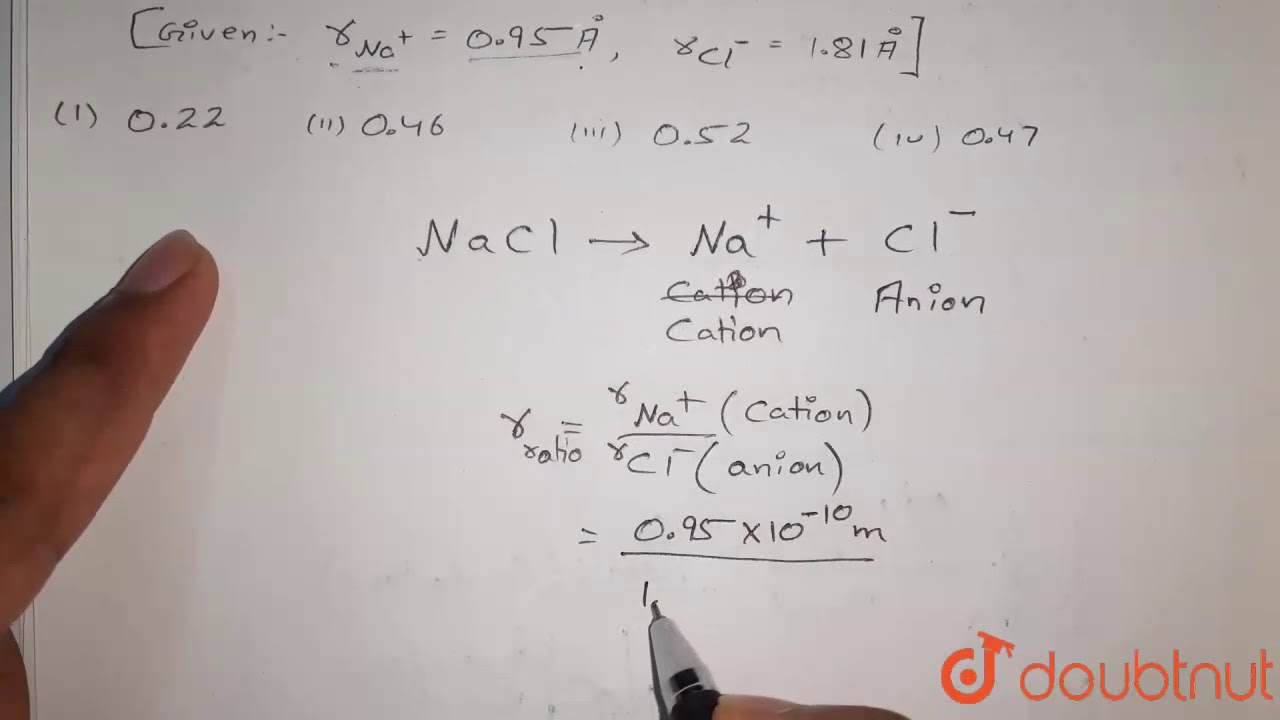 [Given:- r Na+ = 0.95 Å, r Cl- = 1.81 Å]
(i) 0.22 (ii) 0.46 (iii) 0.52 (iv) 0.47
NaCl → Na+ + Cl-
Cation Anion
Cation
r ratio = r Na+ (Cation)
r Cl- (anion)
= 0.95 × 10^-10 m
1
doubtnut